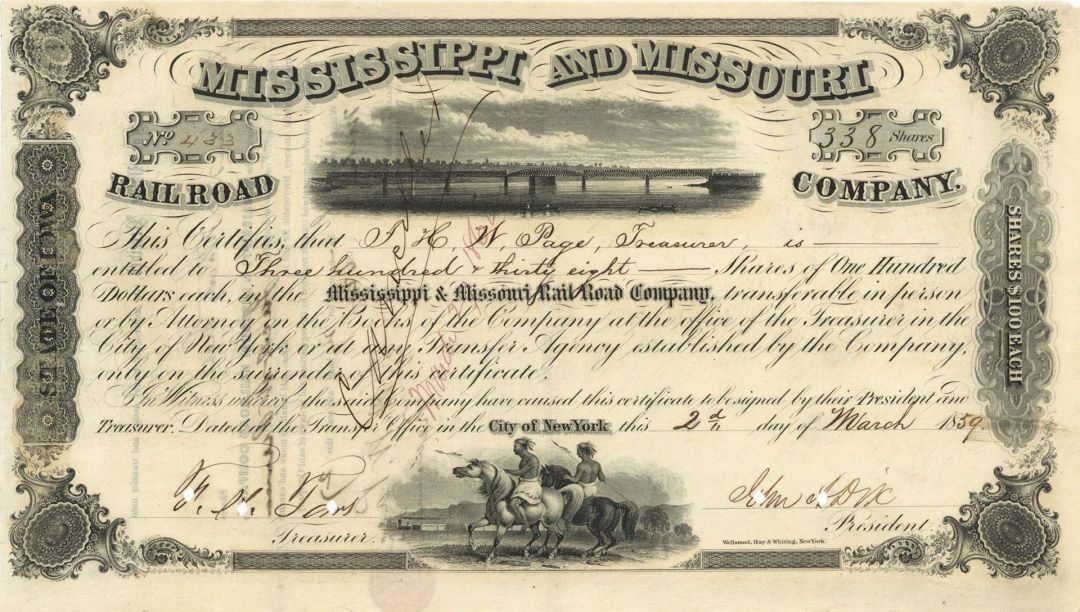 MISSISSIPPI AND MISSOURI
No 433
338 Shares
RAIL ROAD COMPANY.
STATE OF IOWA
SHARES $100 EACH
This Certifies, that J. H. W. Page, Treasurer, is
entitled to Three hundred & thirty eight Shares of One Hundred
Dollars each, in the Mississippi & Missouri Rail Road Company, transferable in person
or by Attorney on the Books of the Company at the office of the Treasurer in the
City of New York or at any Transfer Agency established by the Company,
only on the surrender of this certificate.
In Witness whereof the said Company have caused this certificate to be signed by their President and
Treasurer. Dated at the Transfer Office in the City of New York this 2d day of March 1859
Cancelled
March 2
John A Dix
Treasurer.
President.
Wellstood, Hay & Whiting, New York.